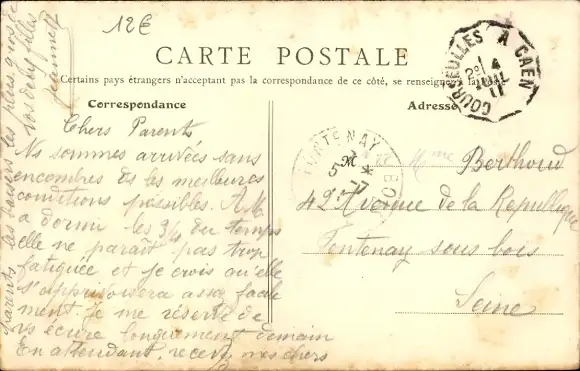 12€
CARTE POSTALE
Certains pays étrangers n'acceptant pas la correspondance de ce côté, se renseigner
Correspondance
Adresse
COURSEULLES A CAEN
4
JUIL
11
FONTENAY
BOIS
5
Chers Parents
Ns sommes arrivées sans
encombres ds les meilleures
conditions possibles. A M
a dormi les 3/4 du temps
elle ne paraît pas trop
fatiguée et je crois qu'elle
s'apprivoisera assez facile
ment. Je me réserve de
vs écrire longuement demain
En attendant, recevez mes chers
parents les baisers les plus
vos filles
M
Mme Berthoud
42 Avenue de la République
Fontenay sous bois
Seine